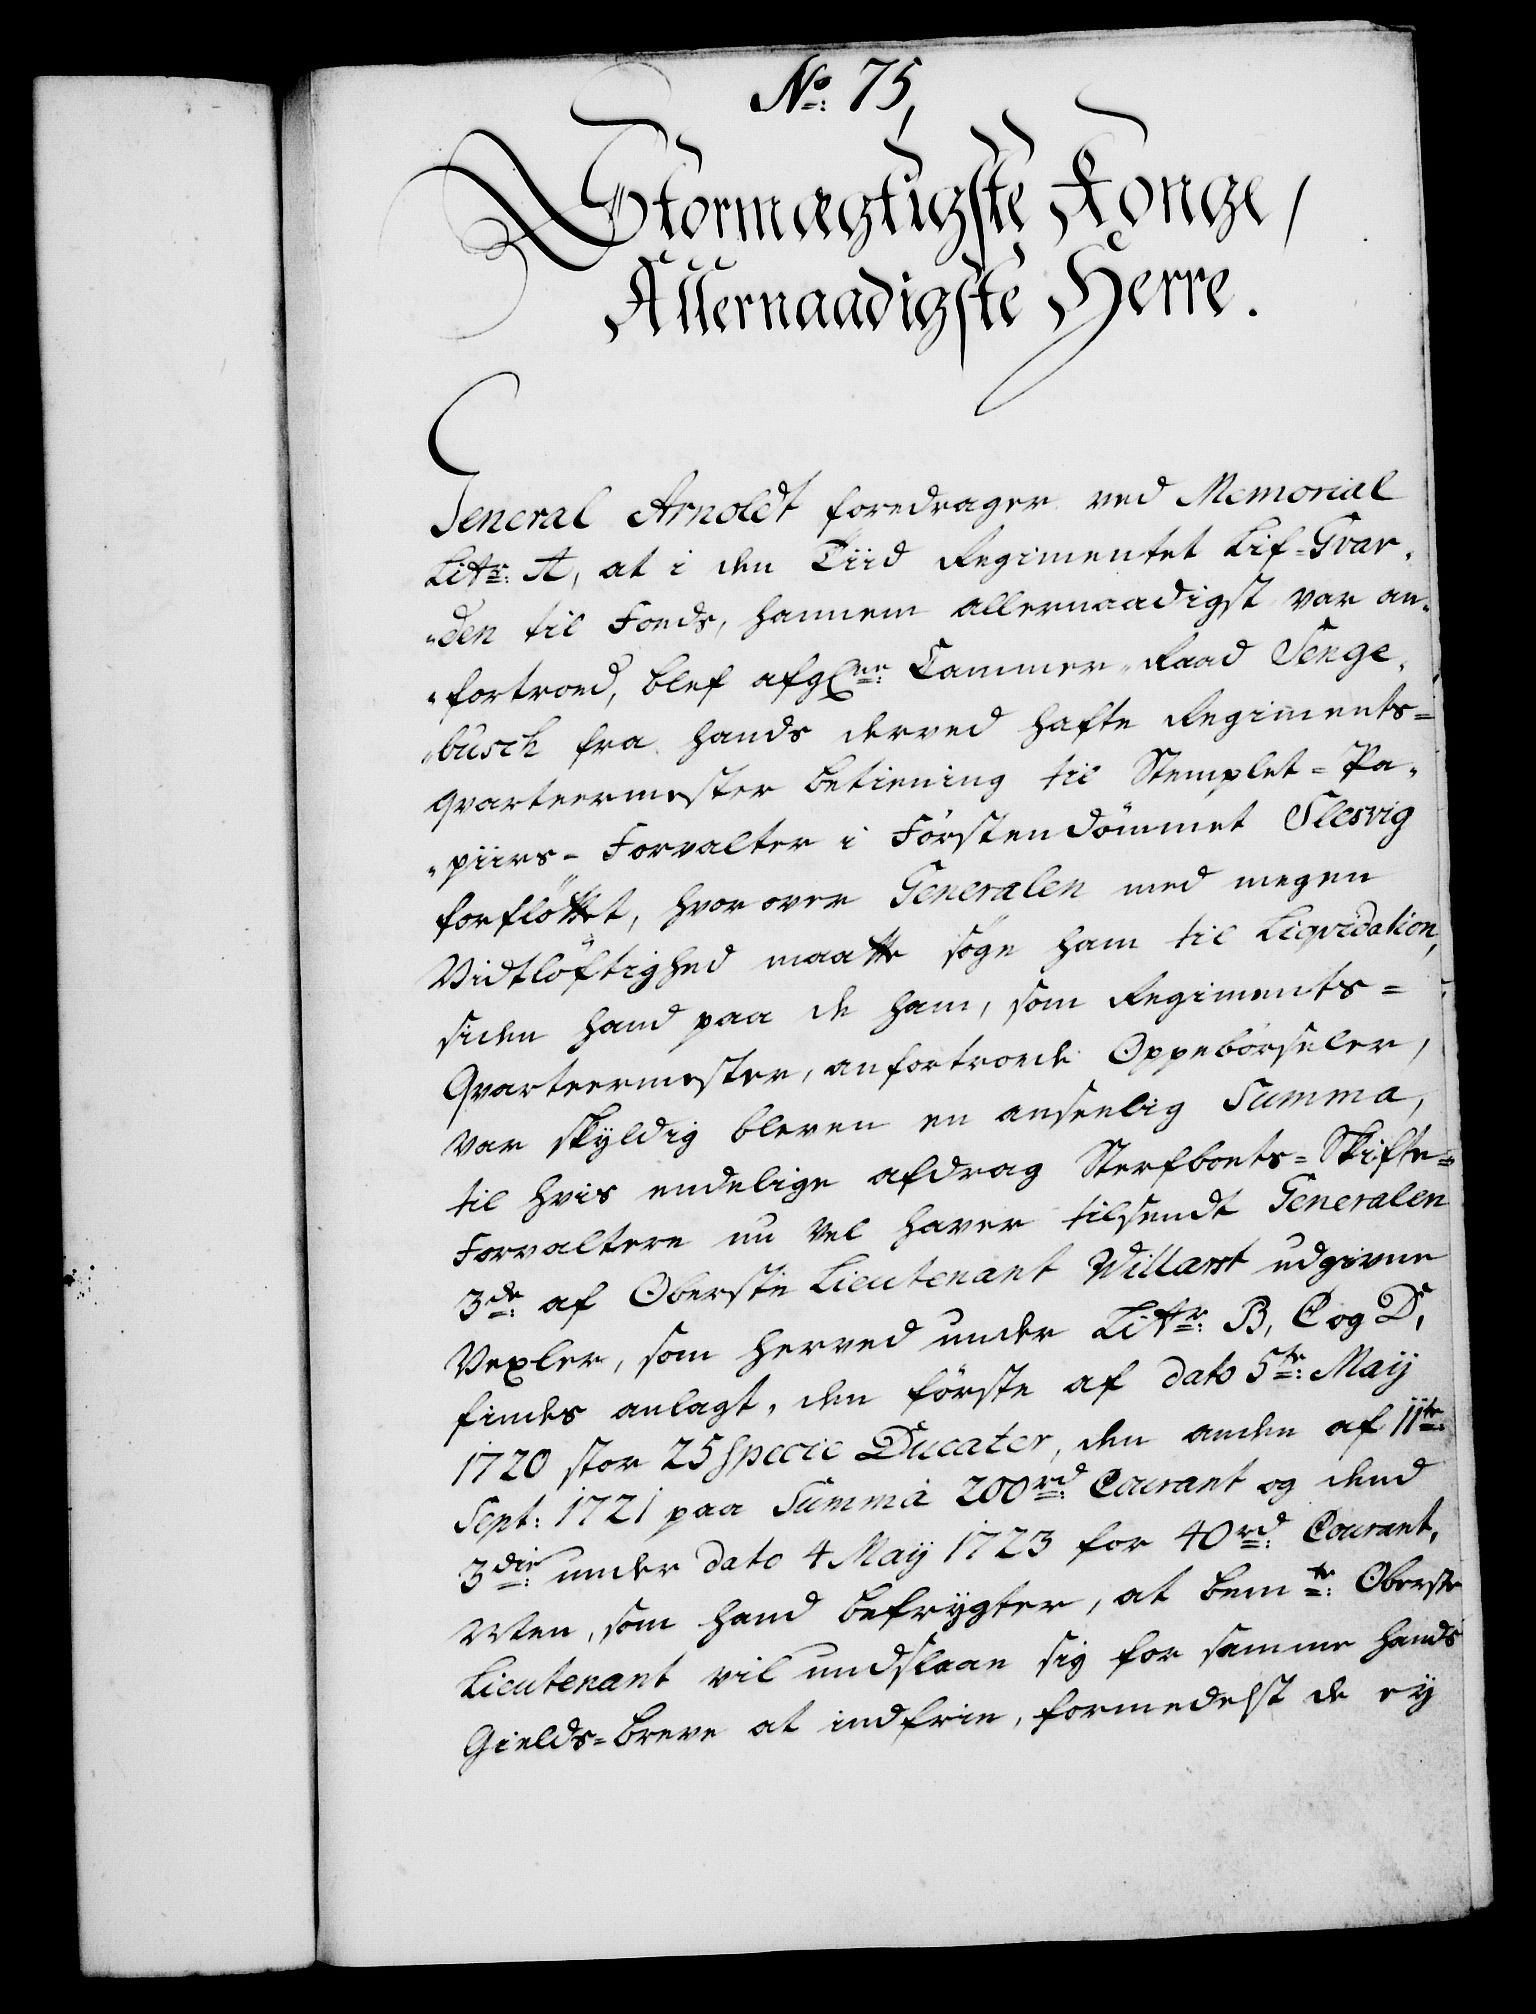 No: 75,
Stormægtigste Konge,
Allernaadigste Herre.
General Arnoldt foredrager ved Memorial
Litr: A, at i den Tiid Regimentet Lif-Gvar-
den til Foeds, hannem allernaadigst var an-
fortroed, blef afgl: Cammer-Raad Senge-
busch fra hands derved hafte Regiments-
qvarteermester betiening til Stemplet-Pa-
piirs-Forvalter i Förstendömmet Slesvig
forflöttet, hvor over Generalen med megen
Vidtlöftighed maatte söge ham til Liqvidation,
siden hand paa de ham, som Regiments-
Qvarteermester, anfortroede Oppebörseler,
var skyldig bleven en anseelig Summa,
til hvis endelige afdrag Sterfboets-Skifte-
Forvaltere nu vel haver tilsendt Generalen
3de: af Oberste Lieutenant Willarst udgivne
Vexler, som herved under Litr: B, C og D,
findes anlagt, den förste af dato 5te: Maij
1720 stor 25 Specie Ducater, den anden af 11te:
Sept: 1721 paa Summa 200rd: Courant og dend
3die: under dato 4 Maij 1723 for 40rd: Courant,
Men, som hand befrygter, at bemte: Oberste
Lieutenant vil undslaae sig for samme hands
Gields-breve at indfrie, formedelst de ey